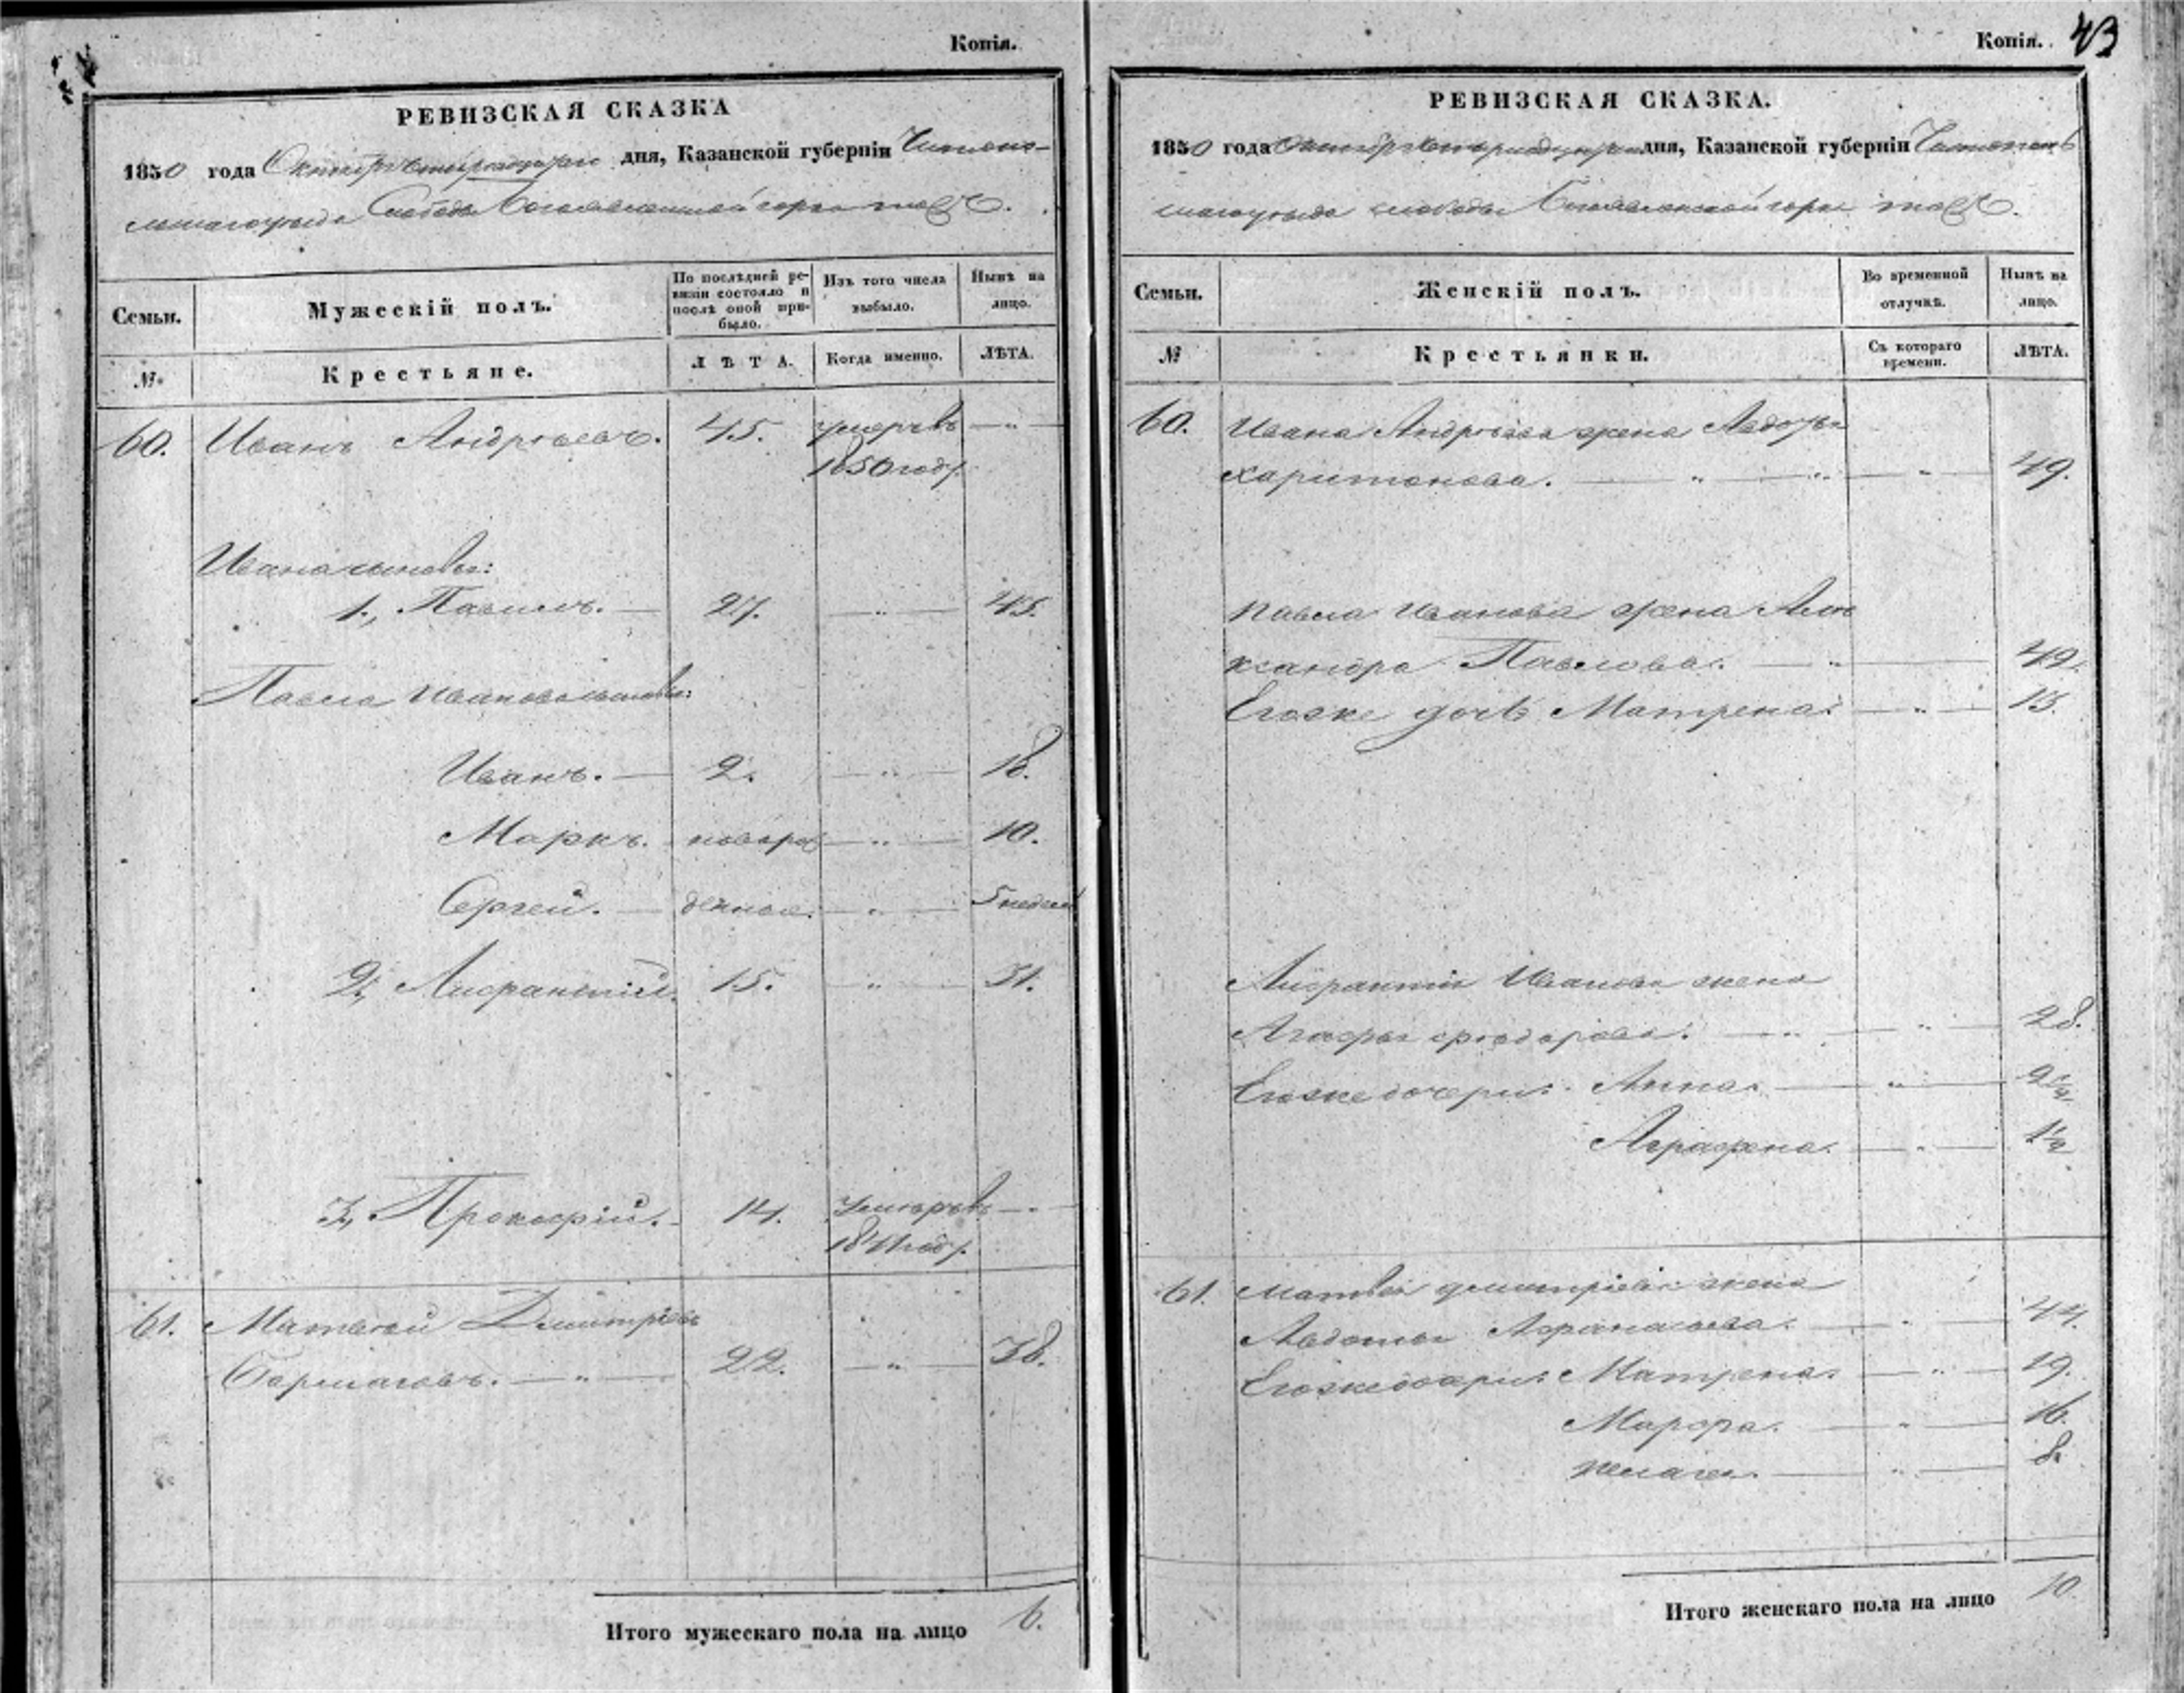 Копія.
РЕВИЗСКАЯ СКАЗКА
1850 года Октября дня, Казанской губерніи Чистополь-
скаго уѣзда Слободы Богоявленской горы тожъ.
Семьи.
Мужескій полъ.
По послѣдней ре-
визіи состояло и
послѣ оной при-
было.
Изъ того числа
выбыло.
Нынѣ на
лицо.
№
Крестьяне.
ЛѢТА.
Когда именно.
ЛѢТА.
60. Иванъ Андреевъ. 45. умеръ въ — " —
1850 году.
Ивана сыновья:
1., Павилъ. — 27. — " — 45.
Павла Иванова сыновья:
Иванъ. — 2. — " — 18.
Маркъ. новорож — " — 10.
Сергей. — денные. — " — 5 недель
2., 15. " — 31.
3., Прокофій. — 14. Умеръ въ — " —
1841 году.
61. Матвей Дмитріевъ
— " — 22. — " — 38.
Итого мужескаго пола на лицо 6.
Копія. 43
РЕВИЗСКАЯ СКАЗКА.
1850 года Октября дня, Казанской губерніи Чистополь
скаго уѣзда слободы Богоявленской горы тожъ.
Семьи.
Женскій полъ.
Во временной
отлучкѣ.
Нынѣ на
лицо.
№
Крестьянки.
Съ котораго
времени.
ЛѢТА.
60. Ивана Андреева жена Авдотья
Харитонова. — " — " — " — 49.
Павла Иванова жена Але
ксандра Павлова. — " — 49.
Егоже дочь Матрена. — " — 13.
Иванова жена
Агафья Федорова. — " — " — 28.
Егоже дочери: Анна. — " —
Аграфена. — " — 1½
61. Матвея Дмитріева жена
Авдотья Афанасьева. — " — 44.
Егоже дочери: Матрена. — " — 19.
Марфа. — " — 16.
Пелагея. — " — 8.
Итого женскаго пола на лицо 10.